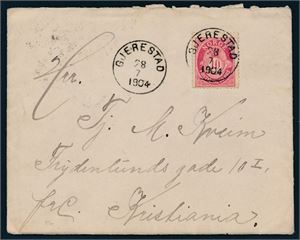 GJERESTAD
28
7
1904
GJERESTAD
28
1904
NORGE
10
Hr.
Tj. M. Kveim
Frydenlunds gade 10 I.
Kristiania.